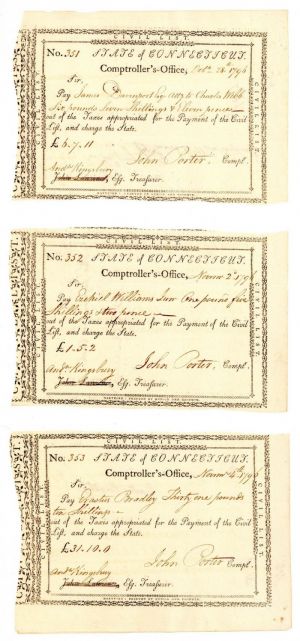 CIVIL LIST.
No. 351 STATE of CONNECTICUT.
Comptroller's-Office, Octr. 28th 1796
Sir,
Pay James Davenport Esq to Charles Webb
Six pounds Seven Shillings & Eleven pence
out of the Taxes appropriated for the Payment of the Civil
List, and charge the State.
£ 6.7.11
John Porter, Compt.
Andw Kingsbury
John Lawrence, Esq. Treasurer.
CIVIL LIST.
No. 352 STATE of CONNECTICUT.
Comptroller's-Office, Novemr 2d 1796
Sir,
Pay Ezekiel Williams Jun One pound five
Shillings & two pence
out of the Taxes appropriated for the Payment of the Civil
List, and charge the State.
£ 1.5.2
John Porter, Compt.
Andw Kingsbury
John Lawrence, Esq. Treasurer.
CIVIL LIST.
No. 353 STATE of CONNECTICUT.
Comptroller's-Office, Novemr 4th 1796
Sir,
Pay Bradley Thirty one pounds
ten Shillings
out of the Taxes appropriated for the Payment of the Civil
List, and charge the State.
£ 31.10.0
John Porter Compt.
Andw Kingsbury
John Lawrence, Esq. Treasurer.